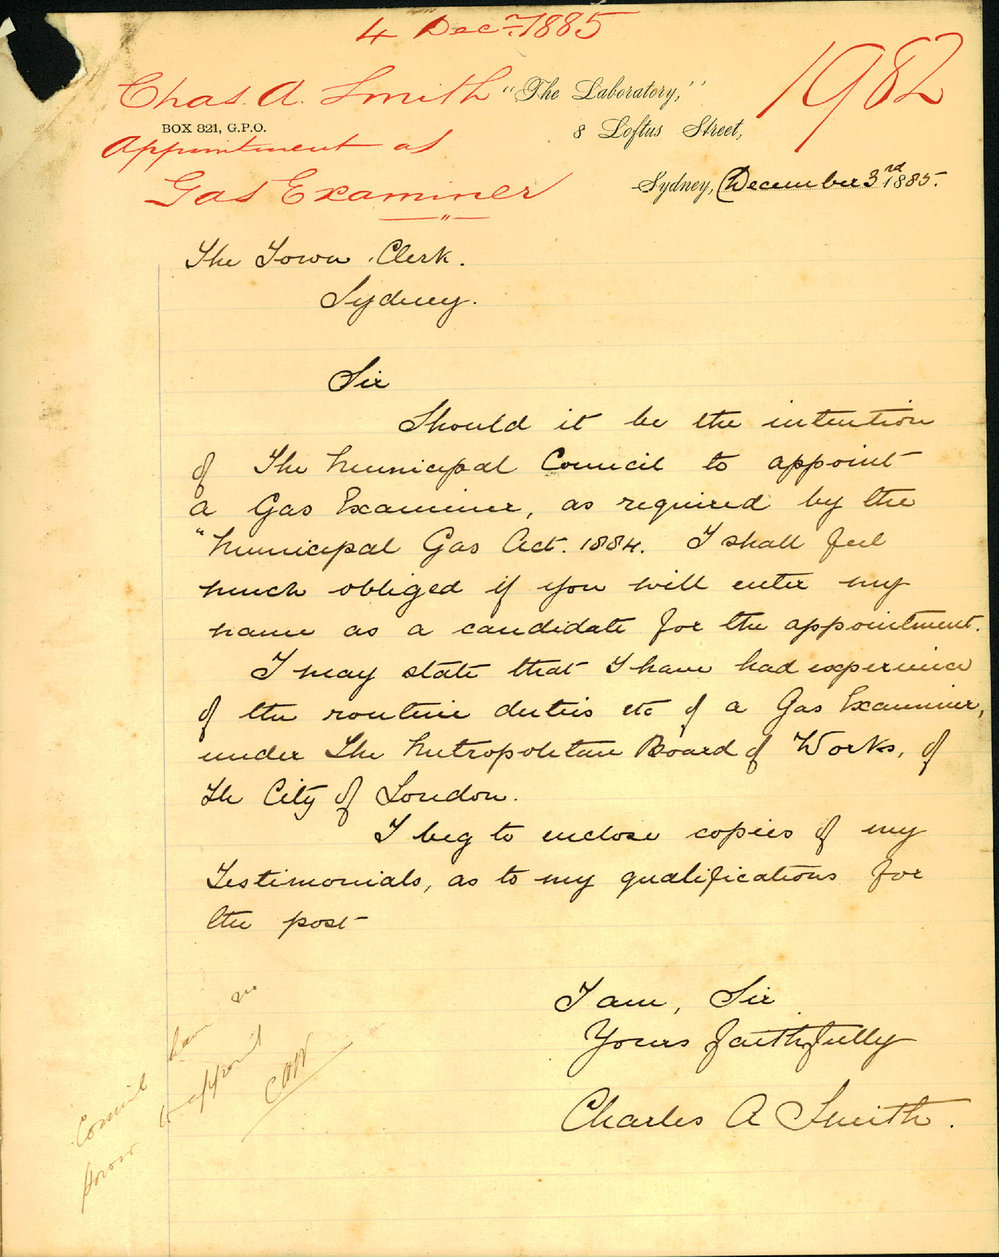 4 Decr. 1885
1982
Chas. A. Smith
"The Laboratory,"
BOX 821, G.P.O.
8 Loftus Street,
Appointment as
Gas Examiner
Sydney, December 3rd 1885.
The Town Clerk.
Sydney.
Sir
Should it be the intention
of The Municipal Council to appoint
a Gas Examiner, as required by the
"Municipal Gas Act. 1884. I shall feel
much obliged if you will enter my
name as a candidate for the appointment.
I may state that I have had experience
of the routine duties etc of a Gas Examiner,
under The Metropolitan Board of Works, of
the City of London.
I beg to enclose copies of my
Testimonials, as to my qualifications for
the post
I am, Sir
Yours faithfully
Charles A Smith.
Council have no
power to appoint